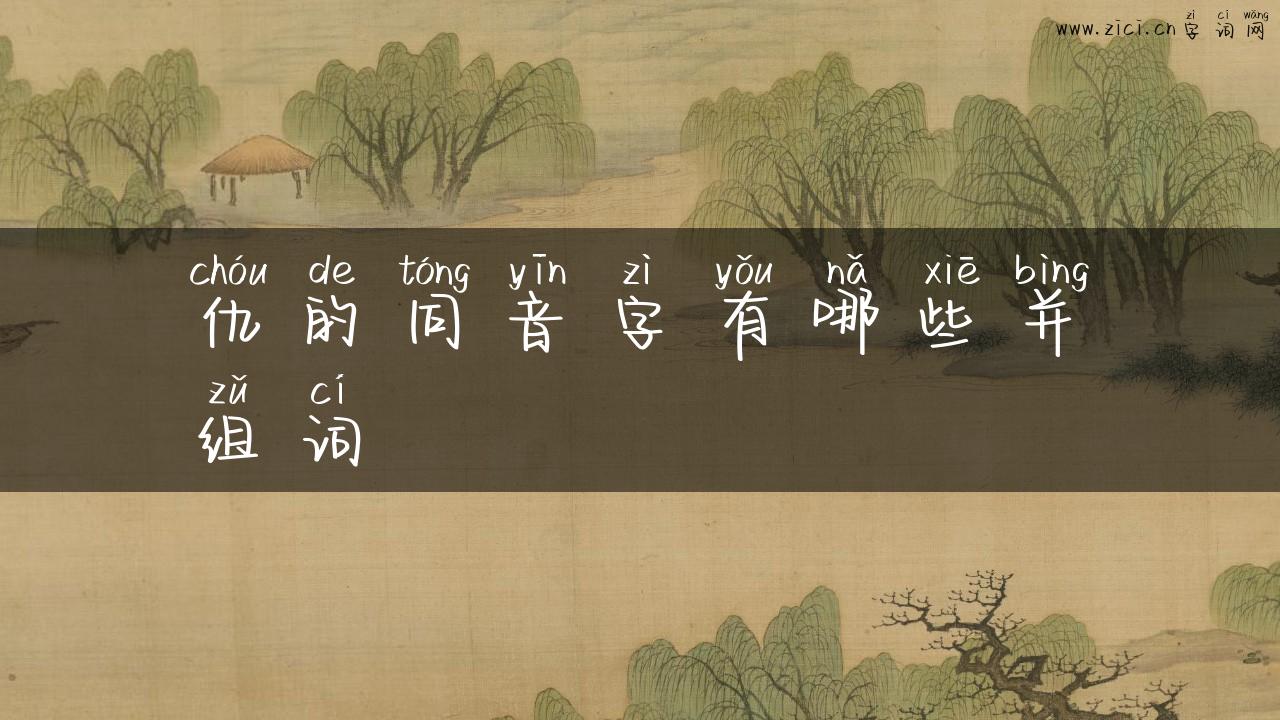 zì cí wǎng
www.zici.cn 字 词 网
chóu de tóng yīn zì yǒu nǎ xiē bìng
仇 的 同 音 字 有 哪 些 并
zǔ cí
组 词